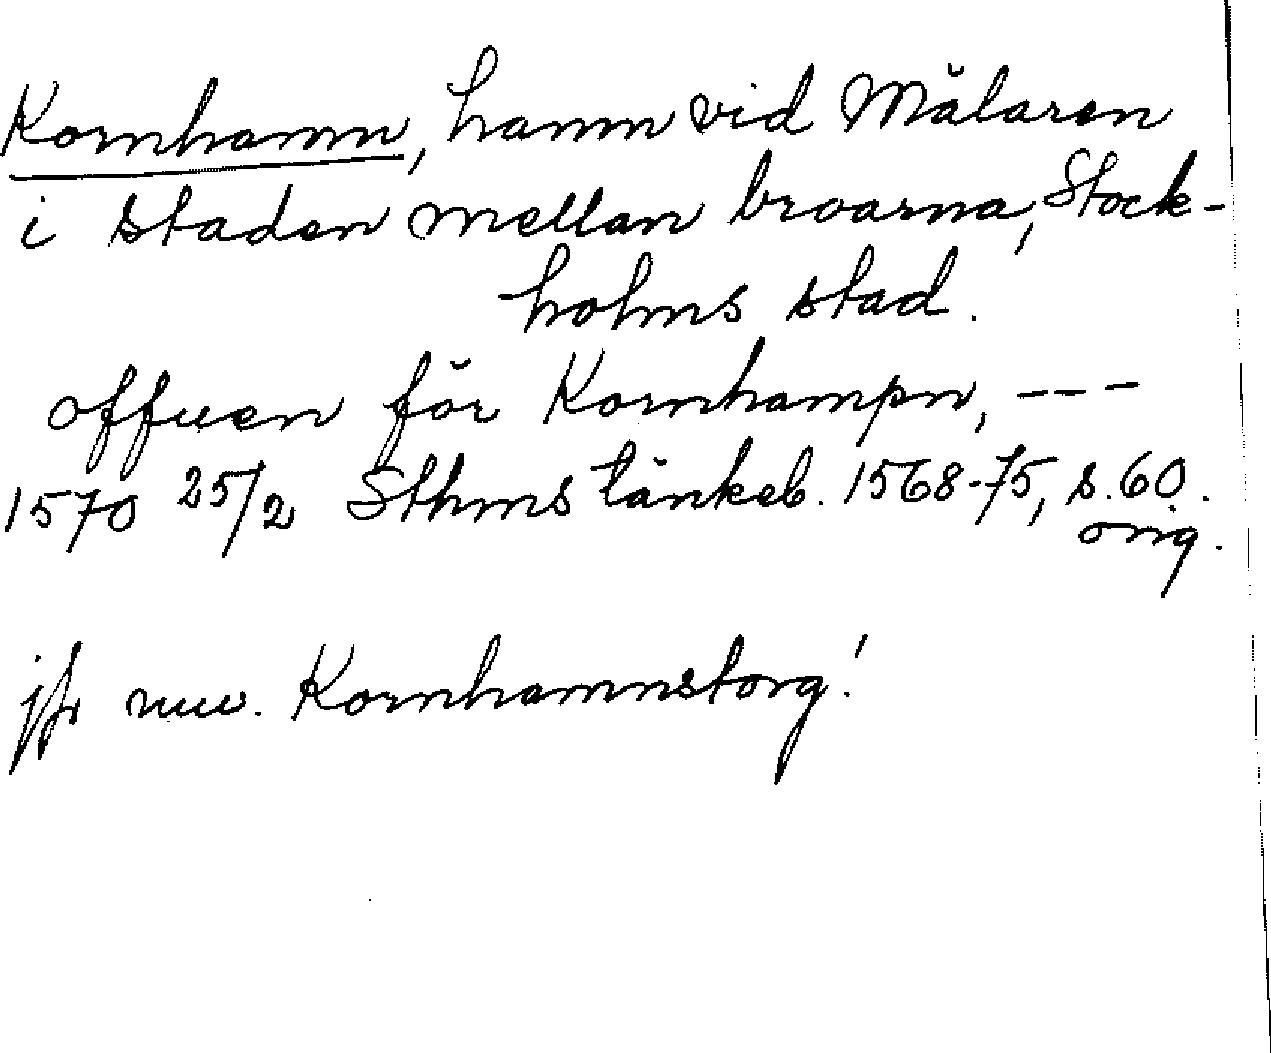 Kornhamn, hamn vid Mälaren
i staden mellan broarna, Stock-
holms stad.
offuen för Kornhampn, ---
1570 25/2 Sthms tänkeb. 1568-75, s. 60.
orig.
jfr nuv. Kornhamnstorg!